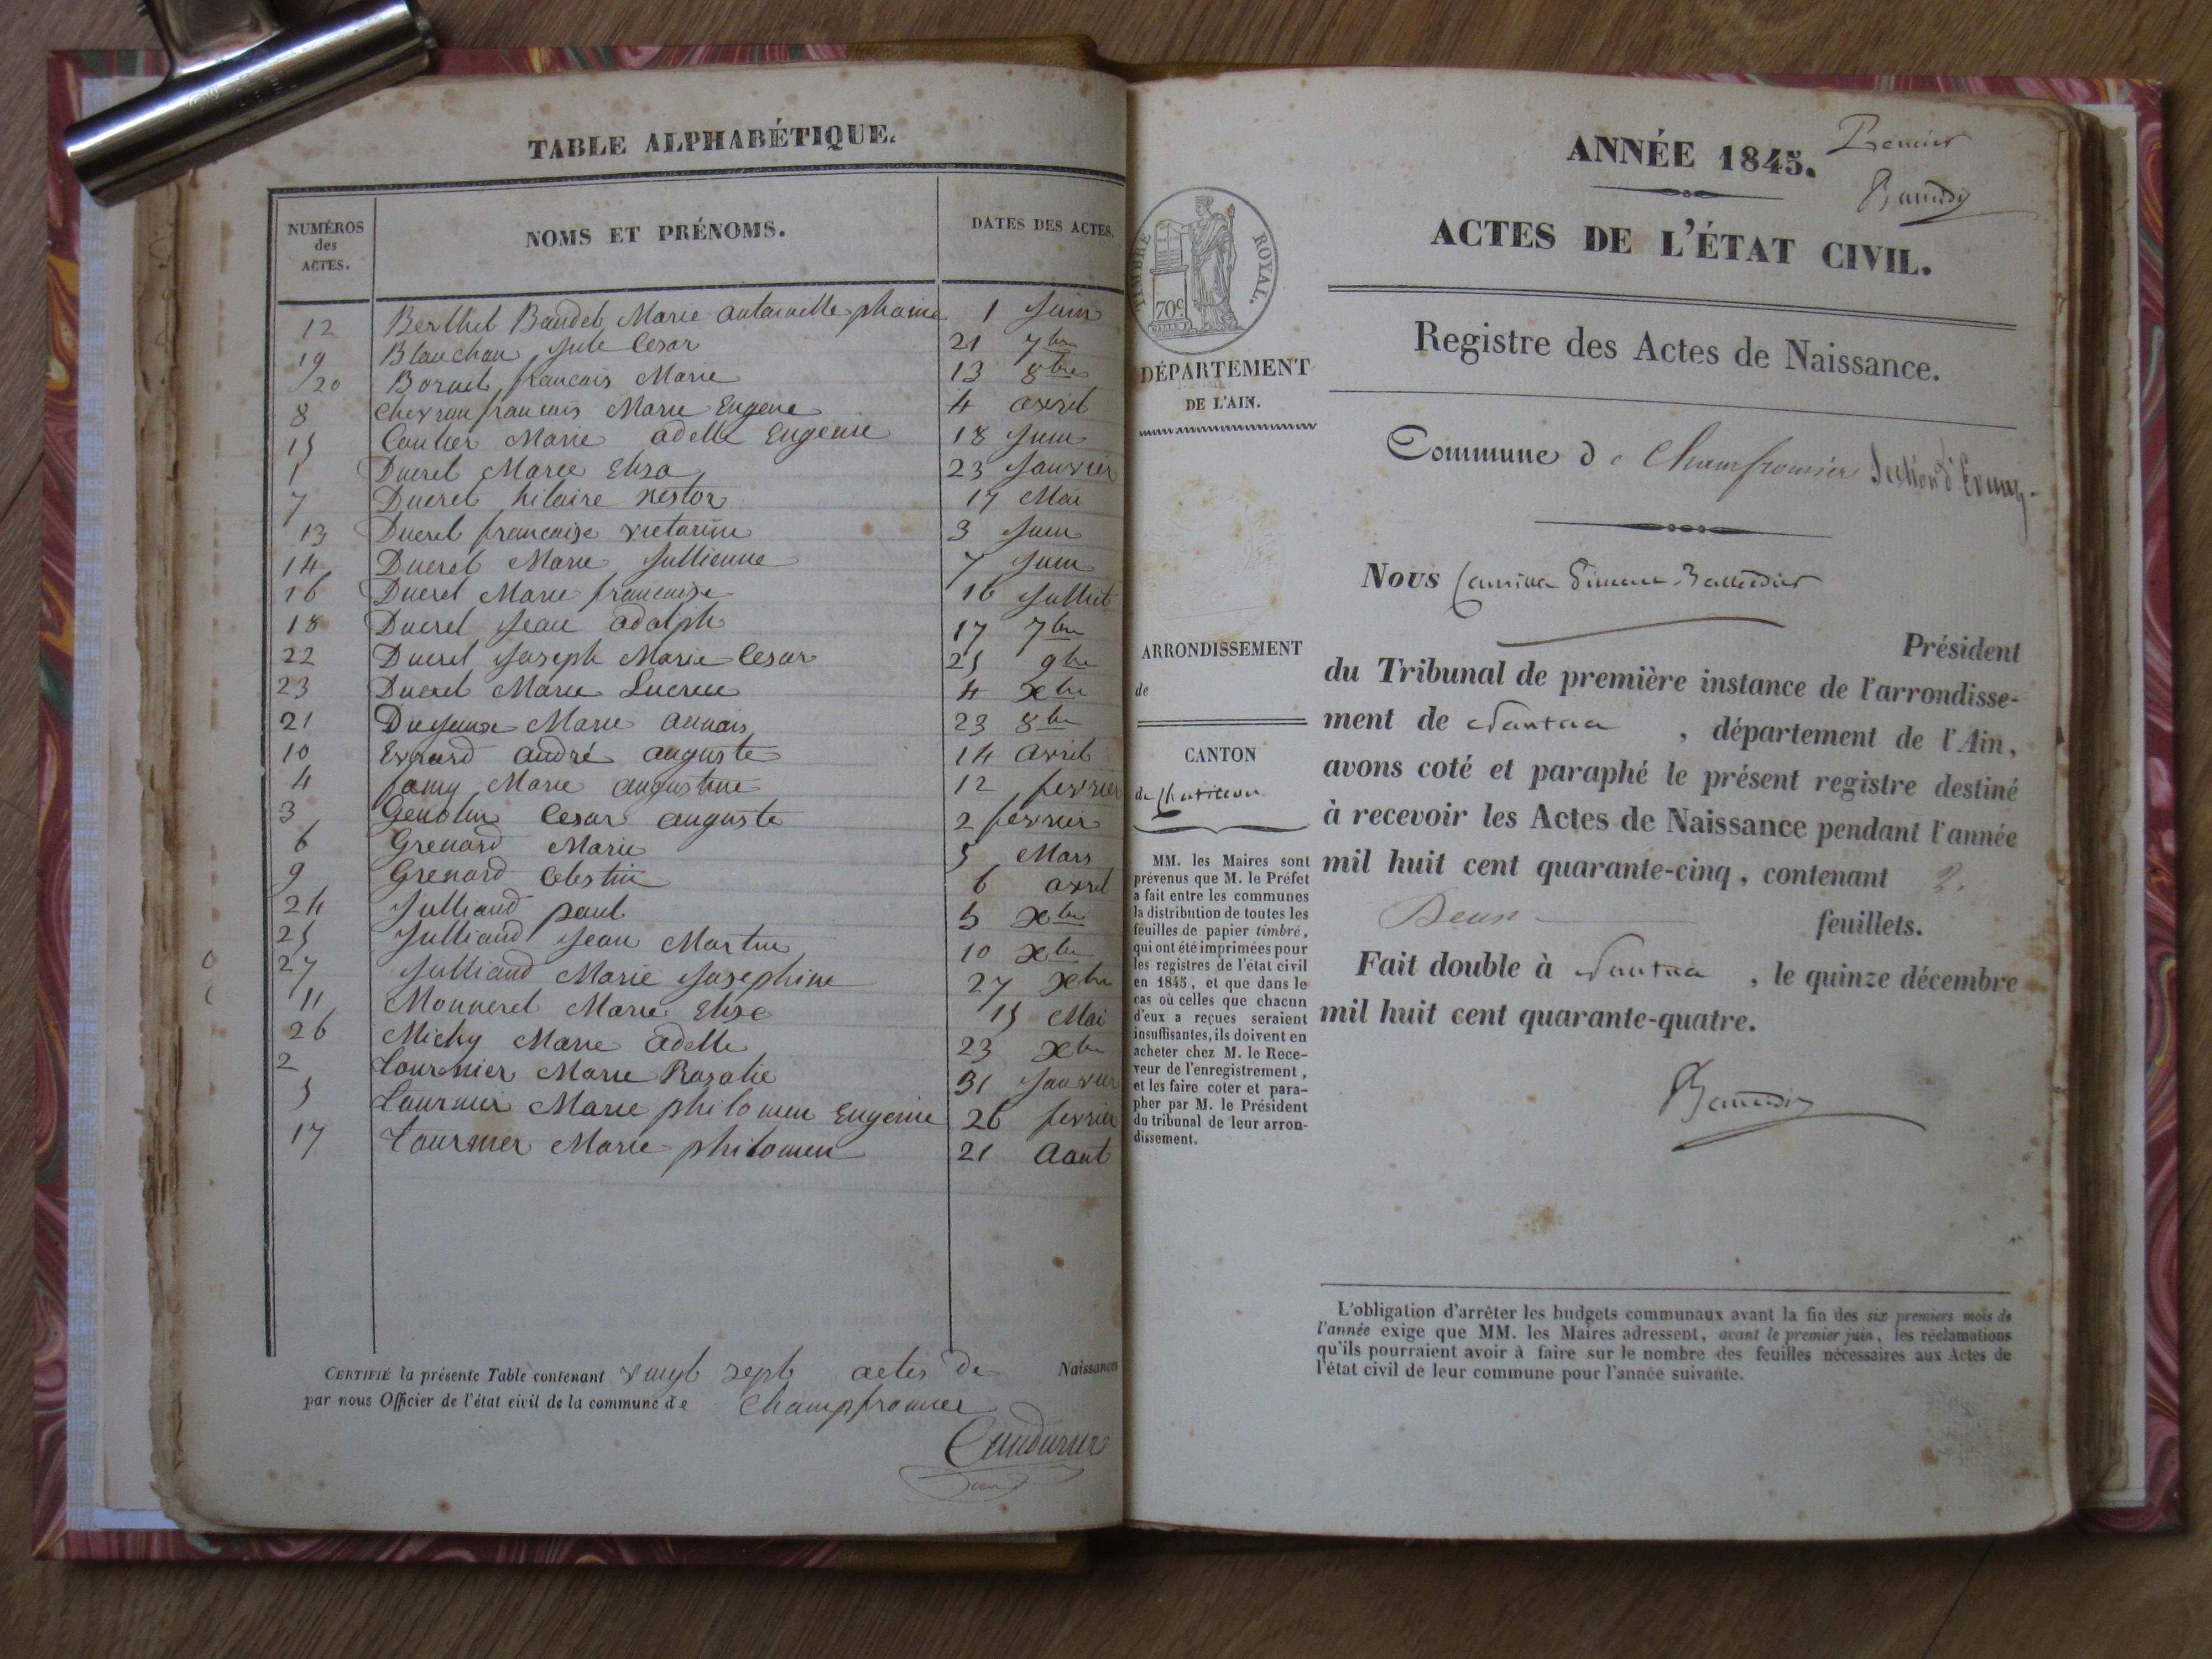 TABLE ALPHABÉTIQUE.
NUMÉROS des ACTES. NOMS ET PRÉNOMS. DATES DES ACTES.
12 Berthet Baudet Marie antoinette 1 Juin
19 Blanchan Jule Cesar 21 7bre
20 Bornet francais Marie 13 8bre
8 Chevron francois Marie Eugene 4 avril
15 Coutier Marie adelle Eugenie 18 Juin
1 Ducret Marie Elisa 23 Janvier
7 Ducret hilaire nestor 17 Mai
13 Ducret francoise victorine 3 Juin
14 Ducret Marie Jullienne 7 Juin
16 Ducret Marie francoise 16 Jullet
18 Ducret Jean adolph 17 7bre
22 Ducret Joseph Marie Cesar 25 9bre
23 Ducret Marie 4 xbre
21 Marie 23 8bre
10 Evrard andré auguste 14 avril
4 famy Marie augustine 12 fevrier
3 Genolin Cesar auguste 2 fevrier
6 Grenard Marie 5 Mars
9 Grenard Celestin 6 avril
24 Julliand paul 5 xbre
25 Julliand Jean Martin 10 xbre
27 Julliand Marie Josephine 27 xbre
11 Monneret Marie Elise 15 Mai
26 Michy Marie adelle 23 xbre
2 tournier Marie Rosalie 31 Janvier
5 tournier Marie philomen Eugenie 26 fevrier
17 tournier Marie philomen 21 Aout
CERTIFIÉ la présente Table contenant vingt sept actes de Naissances
par nous Officier de l'état civil de la commune de Champfromier
ANNÉE 1845. Premier
ACTES DE L'ÉTAT CIVIL.
TIMBRE ROYAL.
70c
Registre des Actes de Naissance.
DÉPARTEMENT
DE L'AIN.
Commune de Champfromier Section d'Evuaz
Nous Camille Simon
Président
ARRONDISSEMENT
de
du Tribunal de première instance de l'arrondisse-
ment de Nantua , département de l'Ain,
avons coté et paraphé le présent registre destiné
à recevoir les Actes de Naissance pendant l'année
mil huit cent quarante-cinq, contenant 2.
Deux feuillets.
Fait double à Nantua , le quinze décembre
mil huit cent quarante-quatre.
CANTON
de Chatillon
MM. les Maires sont
prévenus que M. le Préfet
a fait entre les communes
la distribution de toutes les
feuilles de papier timbré,
qui ont été imprimées pour
les registres de l'état civil
en 1845, et que dans le
cas où celles que chacun
d'eux a reçues seraient
insuffisantes, ils doivent en
acheter chez M. le Rece-
veur de l'enregistrement,
et les faire coter et para-
pher par M. le Président
du tribunal de leur arron-
dissement.
L'obligation d'arrêter les budgets communaux avant la fin des six premiers mois de
l'année exige que MM. les Maires adressent, avant le premier juin, les réclamations
qu'ils pourraient avoir à faire sur le nombre des feuilles nécessaires aux Actes de
l'état civil de leur commune pour l'année suivante.